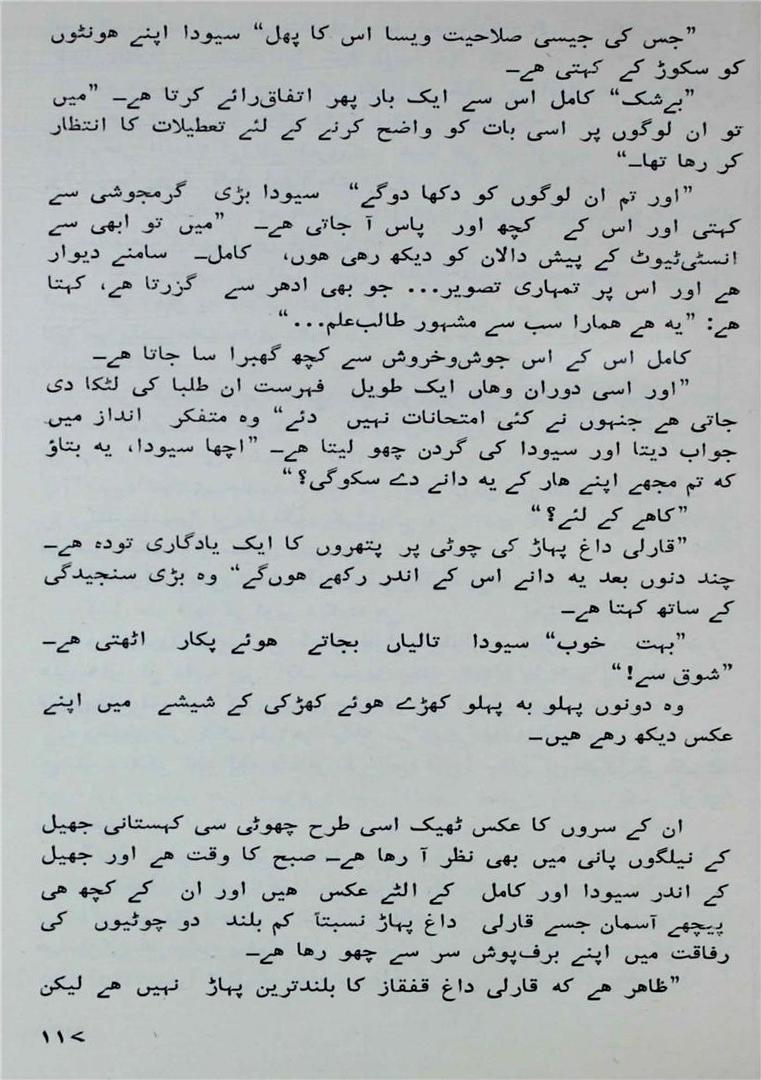 ”جس کی جیسی صلاحیت ویسا اس کا پھل“ سیودا اپنے ھونٹوں
کو سکوڑ کے کہتی ھے۔
”بےشک“ کامل اس سے ایک بار پھر اتفاق‌رائے کرتا ھے۔ ”میں
تو ان لوگوں پر اسی بات کو واضح کرنے کے لئے تعطیلات کا انتظار
کر رھا تھا۔“
”اور تم ان لوگوں کو دکھا دوگے“ سیودا بڑی گرمجوشی سے
کہتی اور اس کے کچھ اور پاس آ جاتی ھے۔ ”میں تو ابھی سے
انسٹی‌ٹیوٹ کے پیش دالان کو دیکھ رھی ھوں، کامل۔ سامنے دیوار
ھے اور اس پر تمہاری تصویر... جو بھی ادھر سے گزرتا ھے، کہتا
ھے: ”یہ ھے ھمارا سب سے مشہور طالب‌علم...“
کامل اس کے اس جوش‌وخروش سے کچھ گھبرا سا جاتا ھے۔
”اور اسی دوران وھاں ایک طویل فہرست ان طلبا کی لٹکا دی
جاتی ھے جنہوں نے کئی امتحانات نہیں دئے“ وہ متفکر انداز میں
جواب دیتا اور سیودا کی گردن چھو لیتا ھے۔ ”اچھا سیودا، یہ بتاؤ
کہ تم مجھے اپنے ھار کے یہ دانے دے سکوگی؟“
”کاھے کے لئے؟“
”قارلی داغ پہاڑ کی چوٹی پر پتھروں کا ایک یادگاری تودہ ھے۔
چند دنوں بعد یہ دانے اس کے اندر رکھے ھوں‌گے“ وہ بڑی سنجیدگی
کے ساتھ کہتا ھے۔
”بہت خوب“ سیودا تالیاں بجاتے ھوئے پکار اٹھتی ھے۔
”شوق سے!“
وہ دونوں پہلو بہ پہلو کھڑے ھوئے کھڑکی کے شیشے میں اپنے
عکس دیکھ رھے ھیں۔
ان کے سروں کا عکس ٹھیک اسی طرح چھوٹی سی کہستانی جھیل
کے نیلگوں پانی میں بھی نظر آ رھا ھے۔ صبح کا وقت ھے اور جھیل
کے اندر سیودا اور کامل کے الٹے عکس ھیں اور ان کے کچھ ھی
پیچھے آسمان جسے قارلی داغ پہاڑ نسبتاً کم بلند دو چوٹیوں کی
رفاقت میں اپنے برف‌پوش سر سے چھو رھا ھے۔
”ظاھر ھے کہ قارلی داغ قفقاز کا بلندترین پہاڑ نہیں ھے لیکن
۱۱۷